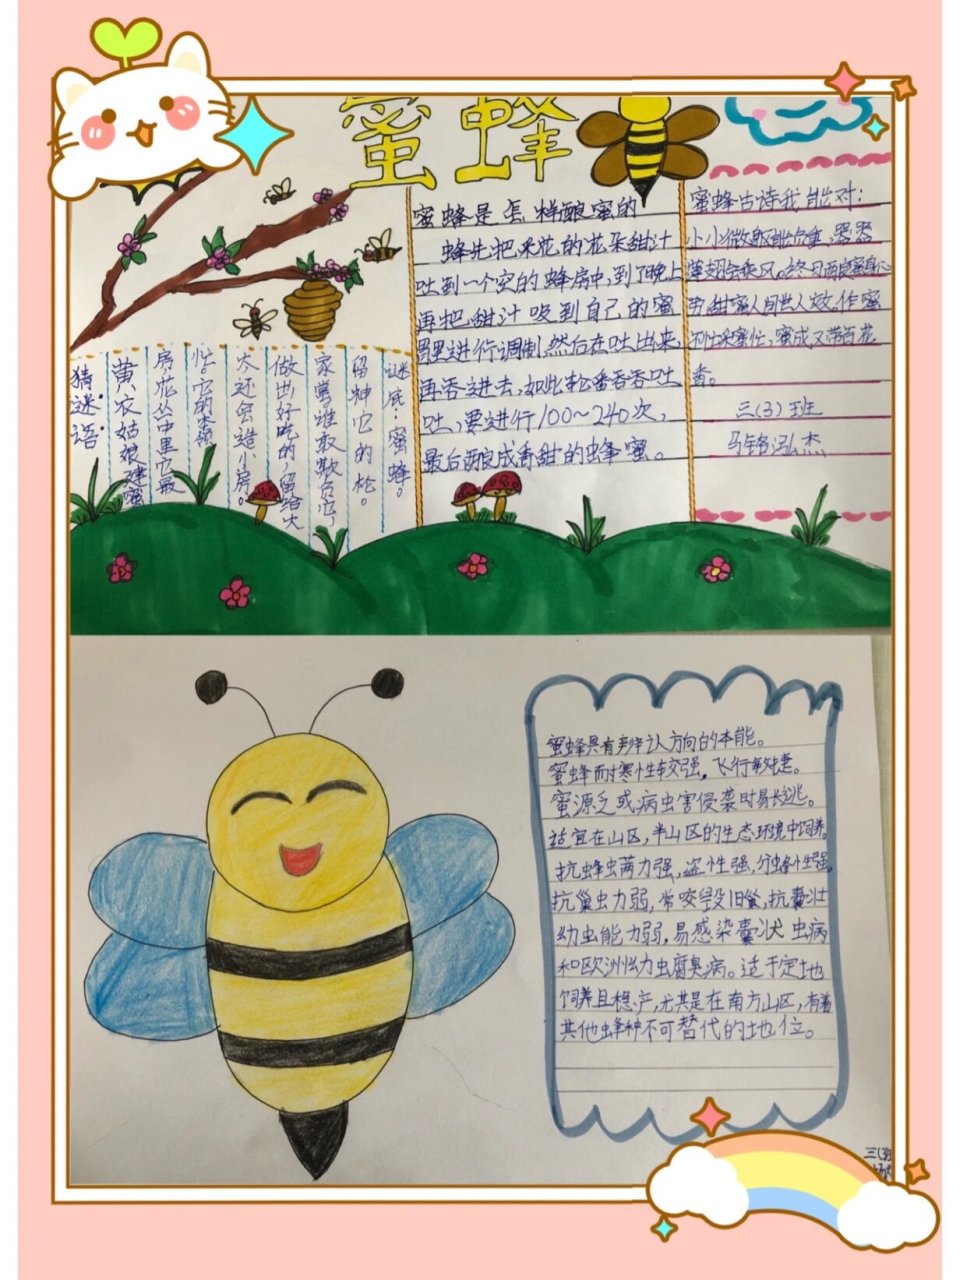 蜜蜂
猜谜语:
黄衣姑娘建蜜
房花丛中里它最
忙。它的本领
大还会造小房。
做出好吃的,留给大
家尝谁敢欺负它,
留神它的松。
谜底:蜜蜂。
蜜蜂是怎样酿蜜的
蜂先把采花的花朵甜汁
吐到一个空的蜂房中,到了晚上
再把甜汁吸到自己的蜜
胃里进行调制,然后在吐出来,
再吞进去,如此轮番吞吞吐
吐,要进行100~240次,
最后酿成香甜的蜂蜜。
蜜蜂古诗我能对:
小小微躯能负重,嚣嚣
薄翅会乘风。终日酿蜜身心
劳,甜蜜人间世人效。作蜜
不忙采蜜忙,蜜成又带百花
香。
三(3)班
蜜蜂具有辨认方向的本能。
蜜蜂耐寒性较强,飞行敏捷。
蜜源乏或病虫害侵袭时易飞逃。
适宜在山区,半山区的生态环境中饲养。
抗蜂虫螨力强,盗性强,分蜂性强,
抗巢虫力弱,常咬毁旧巢,抗囊壮
幼虫能力弱,易感染囊状虫病
和欧洲幼虫腐臭病。适于定地
饲养且稳产,尤其是在南方山区,有着
其他蜂种不可替代的地位。
三(3)班